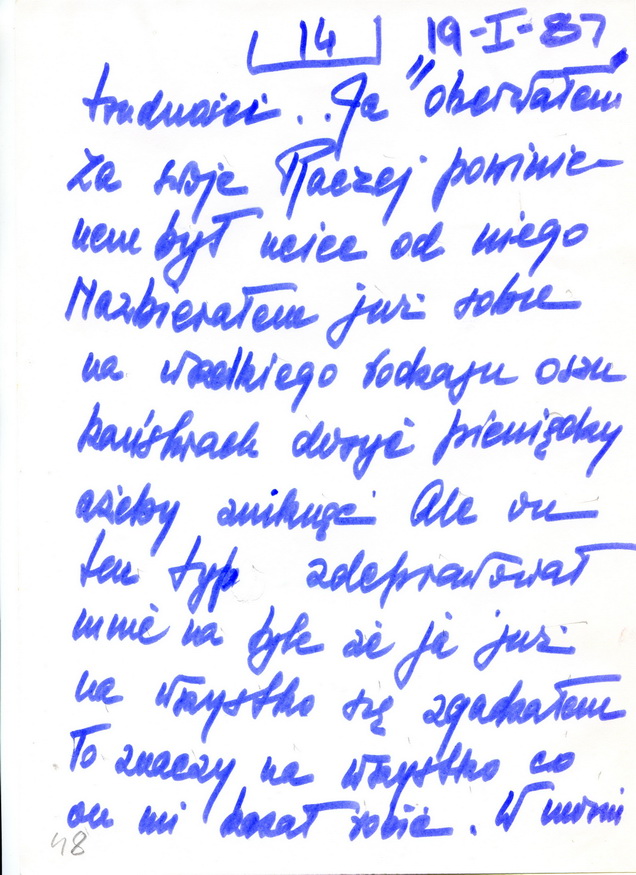 14 19-I-87
trudności.. Ja "oberwałem"
za swoje Raczej powinie-
nem był uciec od niego
Nazbierałem już sobie
na wszelkiego rodzaju oszu
kaństwach dosyć pieniędzy
ażeby zniknąć Ale on
ten typ zdeprawował
mnie na tyle że ja już
na wszystko się zgadzałem
To znaczy na wszystko co
on mi kazał robić. W
48